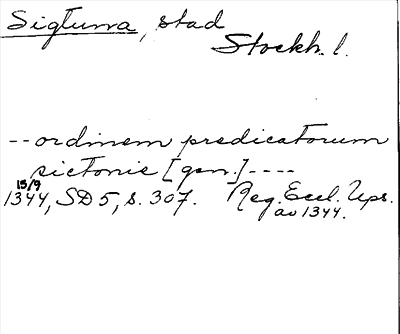 Sigtuna, stad
Stockh. l.
-- ordinem predicatorum
sictonie [gen.] ----
15/9
1344, SD 5, s. 307. Reg. Eccl. Ups.
av 1344.